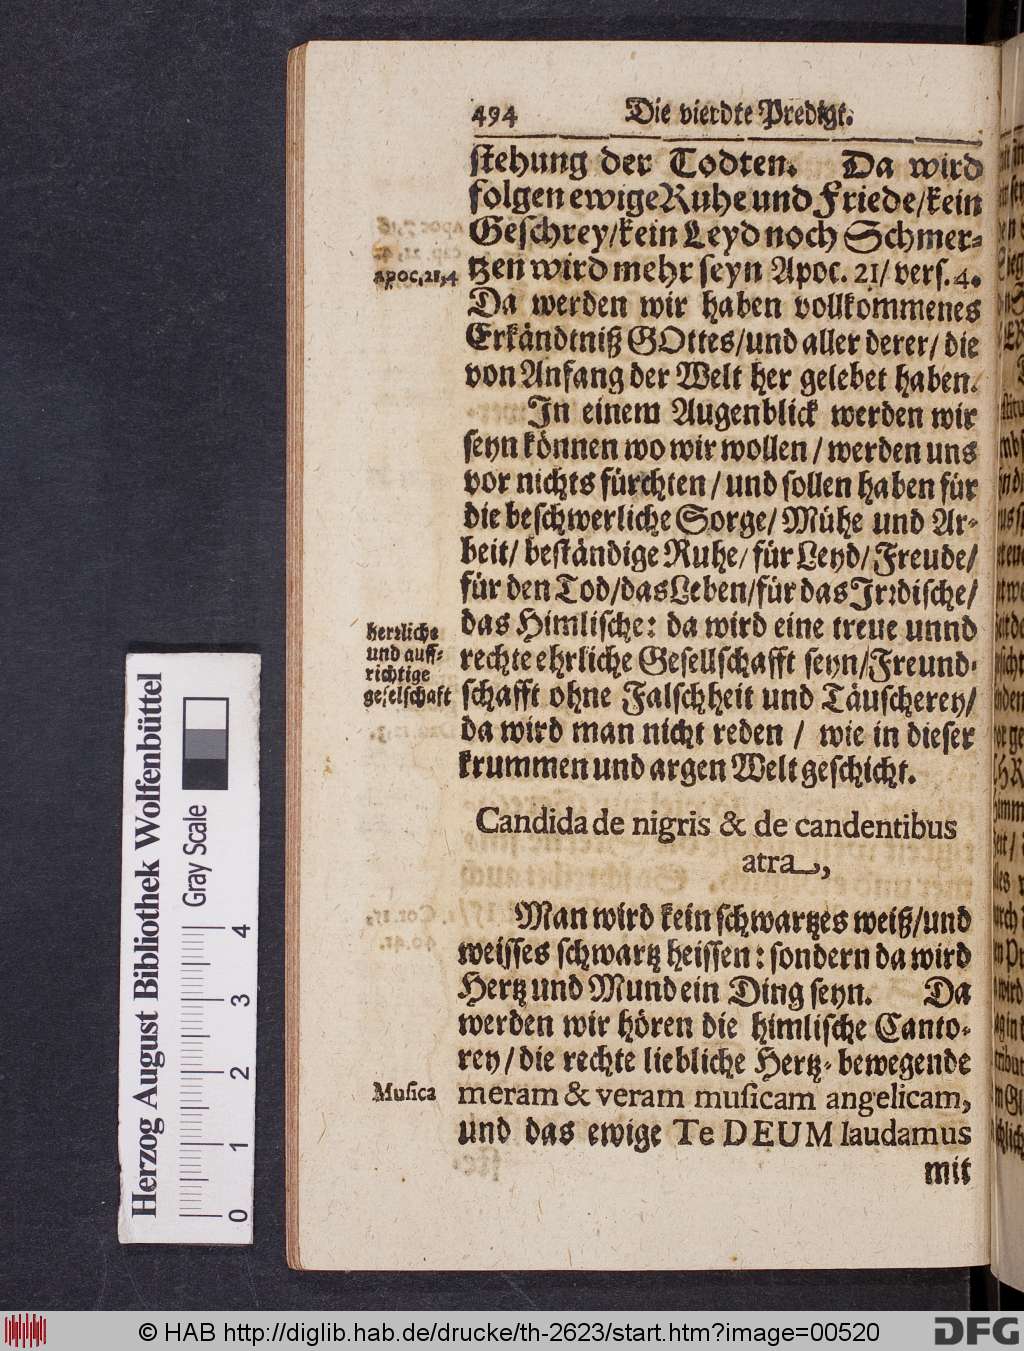 494 Die vierdte Predigt.
ſtehung der Todten. Da wird
folgen ewige Ruhe und Friede/kein
Geſchrey/kein Leyd noch Schmer-
apoc,21,4
tzen wird mehr ſeyn Apoc. 21/ verſ. 4.
Da werden wir haben vollkommenes
Erkändtniß GOttes/und aller derer/ die
von Anfang der Welt her gelebet haben.
In einem Augenblick werden wir
ſeyn können wo wir wollen / werden uns
vor nichts fürchten / und ſollen haben für
die beſchwerliche Sorge/ Mühe und Ar-
beit/ beſtändige Ruhe/ für Leyd/ Freude/
für den Tod/das Leben/für das Irꝛdiſche/
herꝛliche
und auff-
richtige
geſelſchaft
das Himliſche: da wird eine treue unnd
rechte ehrliche Geſellſchafft ſeyn/Freund-
ſchafft ohne Falſchheit und Täuſcherey/
da wird man nicht reden / wie in dieſer
krummen und argen Welt geſchicht.
Candida de nigris & de candentibus
atra,
Man wird kein ſchwartzes weiß/und
weiſſes ſchwartz heiſſen: ſondern da wird
Hertz und Mund ein Ding ſeyn. Da
werden wir hören die himliſche Canto-
rey/die rechte liebliche Hertz-bewegende
Muſica
meram & veram muſicam angelicam,
und das ewige Te DEUM laudamus
mit
Herzog August Bibliothek Wolfenbüttel
Gray Scale
0 1 2 3 4
© HAB http://diglib.hab.de/drucke/th-2623/start.htm?image=00520
DFG